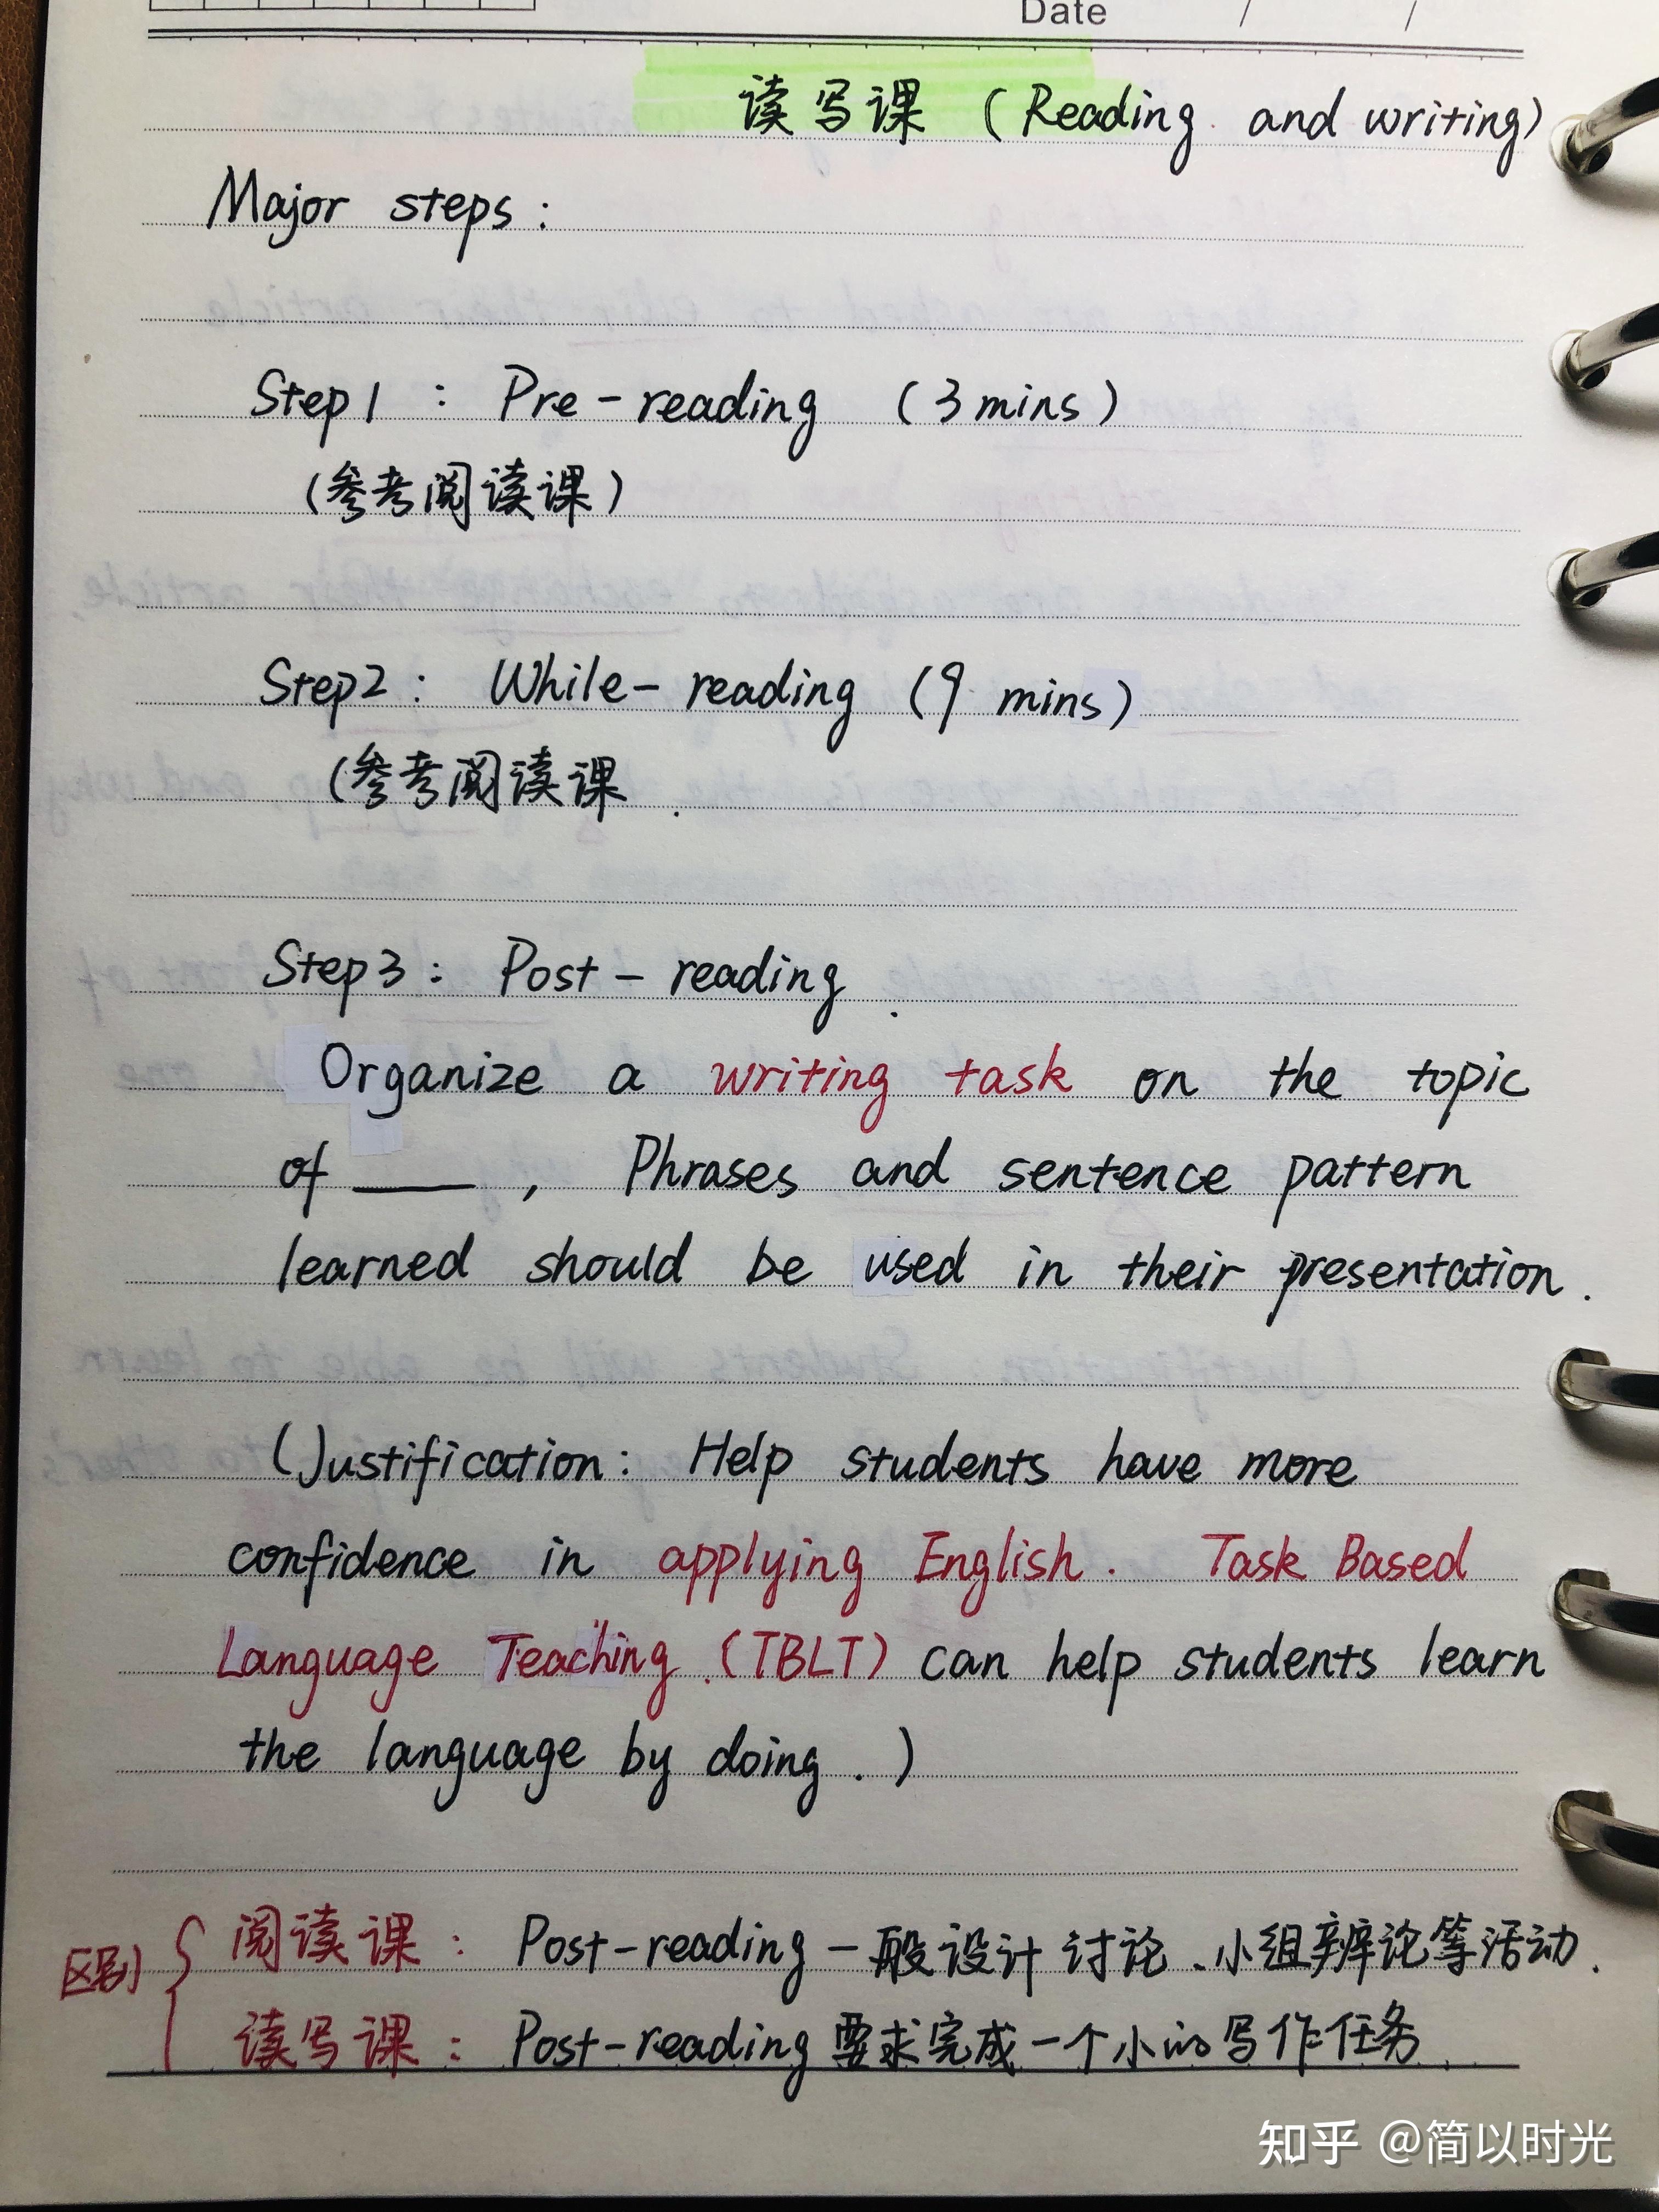 Date / /
读写课 (Reading and writing)
Major steps:
Step1 : Pre-reading (3mins)
(参考阅读课)
Step2: While-reading (9 mins)
(参考阅读课.
Step3: Post-reading.
Organize a writing task on the topic
of ____, Phrases and sentence pattern
learned should be used in their presentation.
(Justification: Help students have more
confidence in applying English. Task Based
Language Teaching (TBLT) can help students learn
the language by doing.)
区别 { 阅读课: Post-reading 一般设计讨论、小组辨论等活动.
读写课: Post-reading 要求完成一个小的写作任务.
知乎 @简以时光